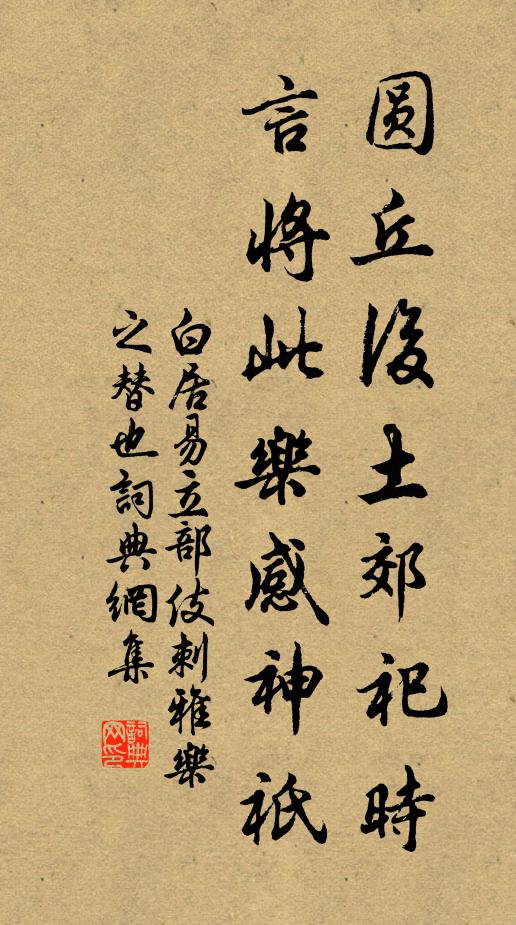 圓丘後土郊祀時
言將此樂感神祇
白居易立部伎刺雅樂
之替也詞典網集
詞典
網印